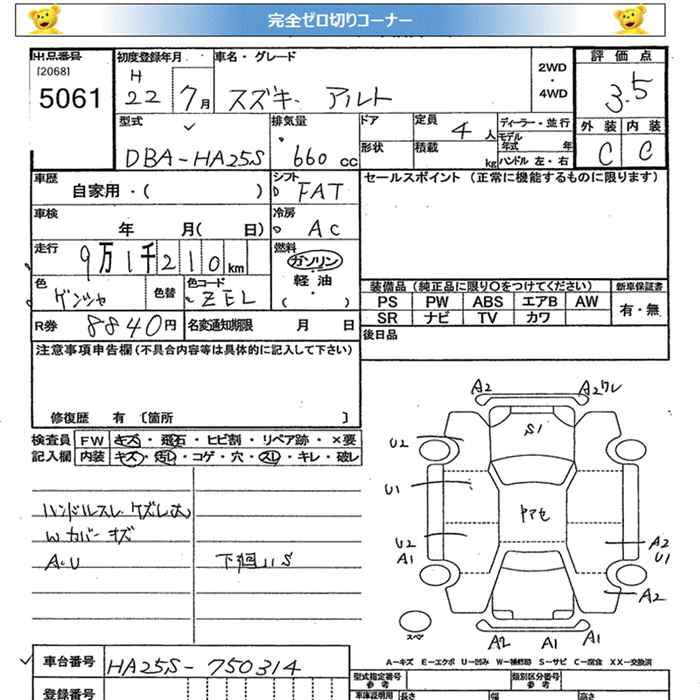 完全ゼロ切りコーナー
出品番号 初度登録年月 車名・グレード 2WD・4WD 評価点
[2068] H
5061 22 7月 スズキ アルト 3.5
型式 排気量 ドア 定員 4人 ディーラー・並行 外装 内装
モデル年式 年
DBA-HA25S 660cc 形状 積載 kg ハンドル 左・右 C C
車歴 シフト セールスポイント (正常に機能するものに限ります)
自家用・( ) FAT
車検 冷房
年 月( 日) AC
走行 燃料
9万1千210km ガソリン
軽油
( )
色 色替 色コード 装備品(純正品に限り○をつけてください) 新車保証書
ゲンシャ ZEL PS PW ABS エアB AW 有・無
SR ナビ TV カワ
R券 8840円 名変通知期限 月 日 後日品
注意事項申告欄(不具合内容等は具体的に記入して下さい)
修復歴 有 〔箇所 〕
検査員 FW キズ・飛石・ヒビ割・リペア跡・×要
記入欄 内装 キズ・汚レ・コゲ・穴・スレ・キレ・破レ
ハンドルスレ
Wカバーキズ
A・U 下廻リS
A2 A2ワレ
S1
U2
U1
ヤアセ
U2 A2
A1 U1
A2
スペア
A2 A1 A1
A-キズ E-エクボ U-凹み W-補修跡 S-サビ C-腐食 XX-交換済
車台番号 HA25S-750314 型式指定番号 参考 類別区分番号 参考
登録番号 車庫証明用 長さ 幅 高さ